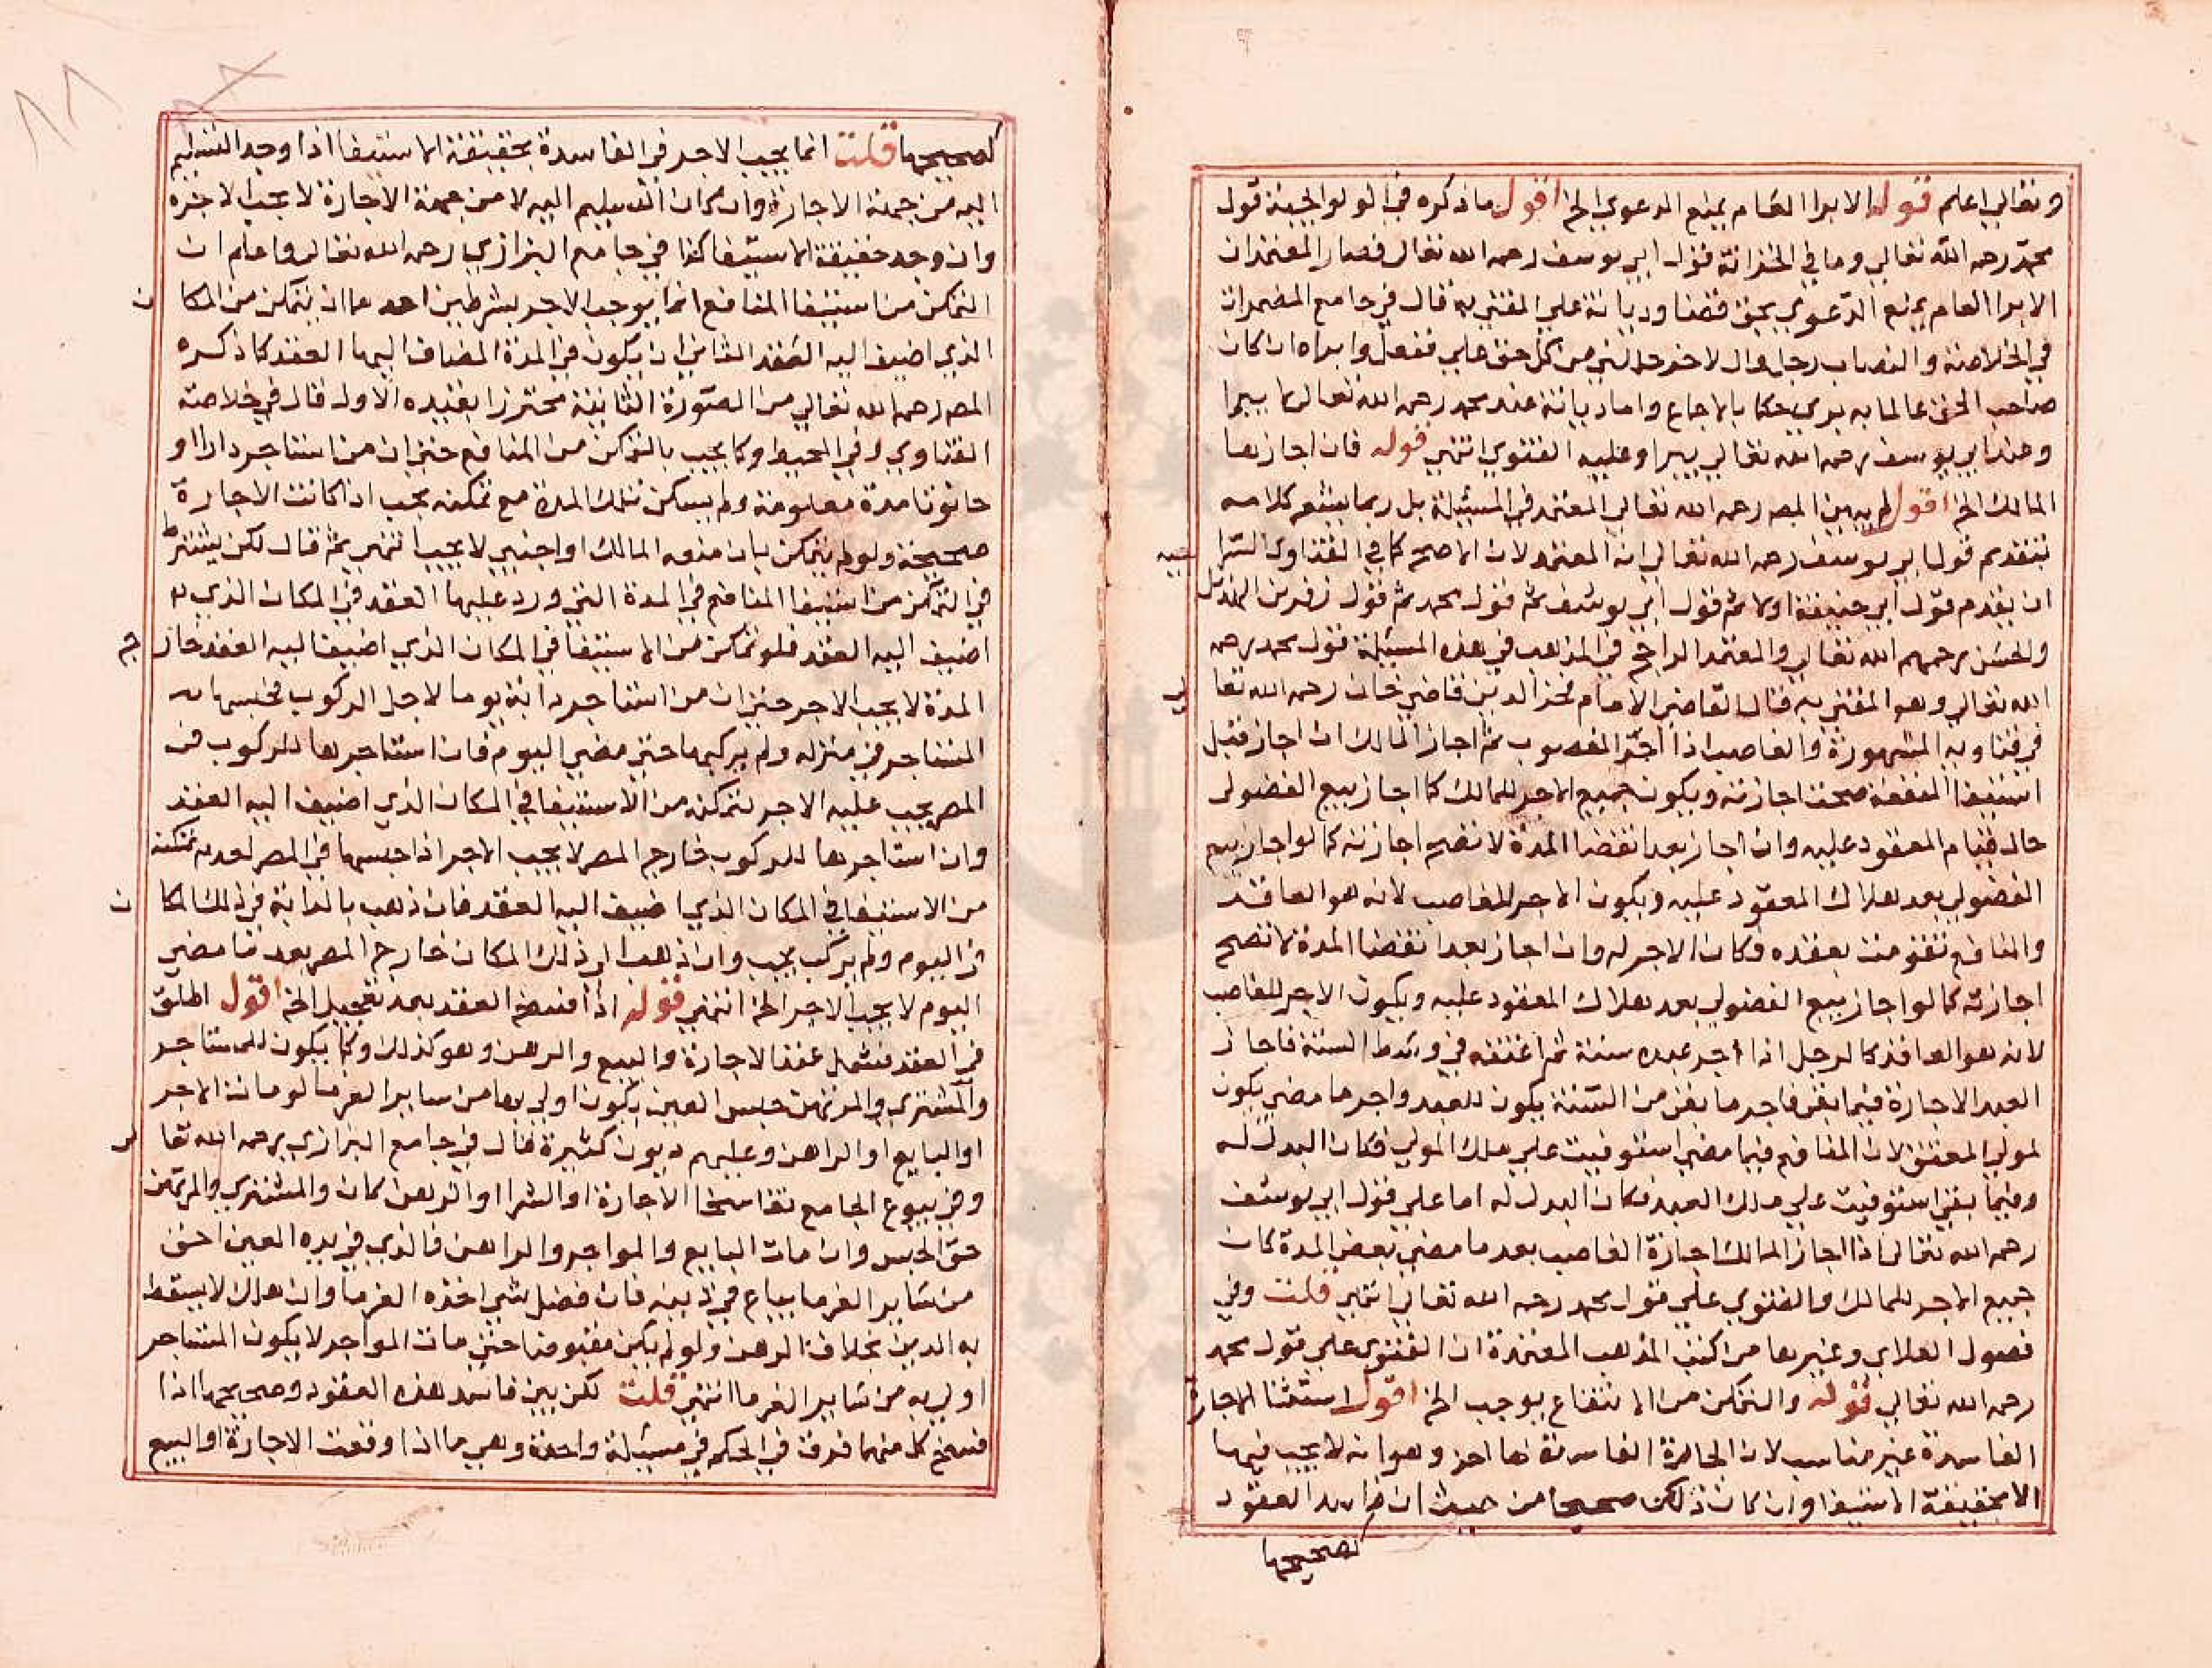 وتعالي اعلم قوله الابرا العام يمنع الدعوي الخ اقول ما ذكره في الولوالجية قول
محمد رحمه الله تعالي وما في الخزانة قول ابي يوسف رحمه الله تعالى فصار المعتمد ان
الابرا العام يمنع الدعوي بحق قضا وديانة علي المفتي به قال في جامع المضمرات
في الخلاصة والنصاب رجل قال لاخر حللني من كل حق علي ففعل وابراه ان كان
صاحب الحق عالما به بري حكما بالاجماع واما ديانة عند محمد رحمه الله تعالى لا يبرا
وعند ابي يوسف رحمه الله تعالي يبرا وعليه الفتوي انتهي قوله فان اجازها
المالك الخ اقول لم يبين المص رحمه الله تعالي المعتمد في المسئلة بل ربما يشعر كلامه
بتقديم قول ابي يوسف رحمه الله تعالي انه المعتمد لان الاصح كما في الفتاوى السرا جيه
ان يقدم قول ابي حنيفة اولا ثم قول ابي يوسف ثم قول محمد ثم قول زفر بن الهذيل
والحسن رحمهم الله تعالي والمعتمد الراجح في المذهب في هذه المسئلة قول محمد رحمه
الله تعالي وهو المفتي به قال القاضي الامام فخر الدين قاضي خان رحمه الله تعا لي
في فتاويه المشهورة والغاصب اذا اجر المغصوب ثم اجاز المالك ان اجاز قبل
استيفا المنفعة صحت اجازته ويكون جميع الاجر للمالك كما اجاز بيع الفضولي
حال قيام المعقود عليه وان اجاز بعد انقضا المدة لا تصح اجازته كما لو اجاز بيع
الفضولي بعد هلاك المعقود عليه ويكون الاجر للغاصب لانه هو العاقد
والمنافع تقومت بعقده فكان الاجر له وان اجاز بعد انقضا المدة لا تصح
اجازته كما لو اجاز بيع الفضولي بعد هلاك المعقود عليه ويكون الاجر للغاصب
لانه هو العاقد كالرجل اذا اجر عبده سنة ثم اعتقه في وسط السنة فاجاز
العبد الاجارة فيما بقي فاجر ما بقي من السنة يكون للعبد واجر ما مضي يكون
لمولي المعتق لان المنافع فيما مضي استوفيت علي ملك المولي فكان البدل له
وفيما بقي استوفيت علي ملك العبد فكان البدل له اما علي قول ابي يوسف
رحمه الله تعالى اذا اجاز المالك اجازة الغاصب بعد ما مضي بعض المدة كان
جميع الاجر للمالك والفتوي علي قول محمد رحمه الله تعالى انتهي قلت وفي
فصول العلاي وغيرها من كتب المذهب المعتمدة ان الفتوي علي قول محمد
رحمه الله تعالي قوله والتمكن من الانتفاع يوجب الخ اقول استثنا الاجارة
الفاسدة غير مناسب لان الفاسدة وهو انه لا يجب فيها
الا بحقيقة الاستيفا وان كان ذلك صحيحا من حيث ان العقود
كصحيحها
كصحيحها قلت انما يجب الاجر في الفاسدة بحقيقة الاستيفا اذا وجد التسليم
اليه من جهة الاجارة وان كان التسليم اليه لا من جهة الاجارة لا يجب الاجره
وان وجد حقيقة الاستيفا كذا في جامع البزازي رحمه الله تعالى واعلم ان
التمكن من استيفا المنافع انما يوجب الاجر بشرطين احدهما ان يتمكن من المكا ن
الذي اضيف اليه العقد الثاني ان يكون في المدة المضاف اليها العقد كما ذكره
المص رحمه الله تعالي من الصورة الثانية محترزا بقيده الاول قال في خلاصة
الفتاوي وفي المحيط وكما يجب بالتمكن من المنافع حتي ان من استاجر دارا او
حانوتا مدة معلومة ولم يسكن تلك المدة مع تمكنه يجب اذا كانت الاجارة
صحيحة ولو لم يتمكن بان منعه المالك او اجنبي لا يجب انتهي ثم قال لكن يشترط
في التمكن من استيفا المنافع في المدة التي ورد عليها العقد في المكان الذي
اضيف اليه العقد فلو تمكن من الاستيفا في المكان الذي اضيف اليه العقد خار ج
المدة لا يجب الاجر حتي ان من استاجر دابة يوما لاجل الركوب فحبسها
المستاجر في منزله ولم يركبها حتي مضي اليوم فان استاجرها للركوب في
المصر يجب عليه الاجر لتمكنه من الاستيفا في المكان الذي اضيف اليه العقد
وان استاجرها للركوب خارج المصر لا يجب الاجر اذا حبسها في المصر لعدم تمكنه
من الاستيفا في المكان الذي اضيف اليه العقد فان ذهب بالدابة في ذلك المكا ن
في اليوم ولم يركب يجب وان ذهب الي ذلك المكان خارج المصر بعد ما مضي
اليوم لا يجب الاجر الخ انتهي قوله اذا فسخ العقد بعد تعجيل الخ اقول اطلق
في العقد فشمل عقد الاجارة والبيع والرهن وهو كذلك وكما يكون للمستاجر
والمشتري والمرتهن حبس العين يكون اولي بها من ساير الغرما لو مات الاجر
او البايع او الراهن وعليهم ديون كثيرة قال في جامع البزازي رحمه الله تعا لي
وفي بيوع الجامع تفاسخا الاجارة او الشرا او الرهن كان والمشتري والمرتهن
حق الحبس وان مات البايع والمواجر والراهن فالذي في يده العين احق
من ساير الغرما يباع في دينه فان فضل شي اخذه الغرما وان هلك لا يسقط
به الدين بخلاف الرهن ولو لم يكن مقبوضا حتي مات المواجر لا يكون المستاجر
اولي به من ساير الغرما انتهي قلت لكن بين فاسد هذه العقود وصحيحها اذا
فسخ كل منهما فرق في الحكم في مسئلة واحدة وهي ما اذا وقعت الاجارة او البيع